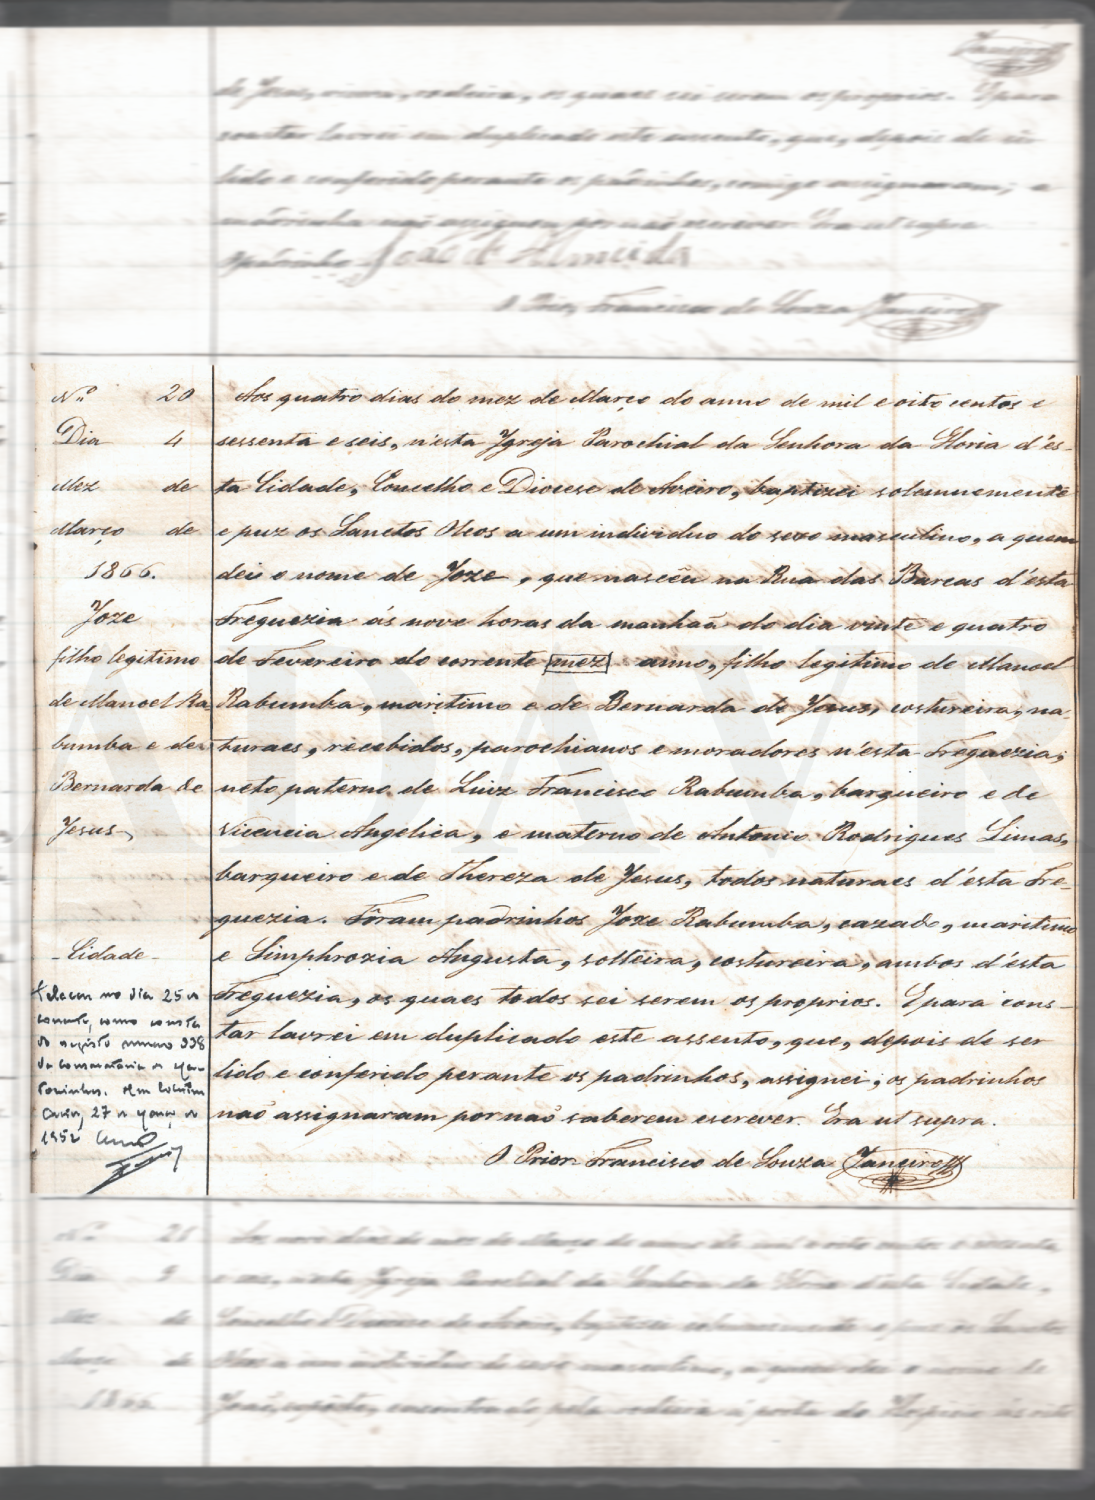 Janeiro
de Jesus, viuva, rodeira, os quaes sei serem os proprios. E para
constar lavrei em duplicado este assento, que, depois de ser
lido e conferido perante os padrinhos, comigo assignaram; a
madrinha não assignou por não escrever. Era ut supra
O padrinho João d'Almeida
O Prior, Francisco de Souza Janeiro
N.º 20
Dia 4
Mez de
Março de
1866.
Joze
filho legitimo
de Manoel Ra
bumba e de
Bernarda de
Jesus,
- Cidade -
Faleceu no dia 25 do
corrente, como consta
do registo numero 338
da Conservatoria de
27 de Março de
1952
Aos quatro dias do mez de Março do anno de mil e oito centos e
sessenta e seis, n'esta Igreja Parochial da Senhora da Gloria d'es-
ta Cidade, Concelho e Diocese de Aveiro, baptizei solemnemente
e puz os Sanctos Oleos a um individuo do sexo masculino, a quem
dei o nome de Joze, que nascêu na Rua das Barcas d'ésta
Freguezia ás nove horas da manhaã do dia vinte e quatro
de Fevereiro do corrente mez anno, filho legitimo de Manoel
Rabumba, maritimo e de Bernarda de Jesus, costureira, na-
turaes, recebidos, parochianos e moradores n'esta Freguezia;
neto paterno de Luiz Francisco Rabumba, barqueiro e de
Vicencia Angelica, e materno de Antonio Rodrigues Limas,
barqueiro e de Thereza de Jesus, todos naturaes d'ésta Fre-
guezia. Foram padrinhos Joze Rabumba, cazado, maritimo
e Simphrozia Augusta, solteira, costureira, ambos d'ésta
Freguezia, os quaes todos sei serem os proprios. E para cons-
tar lavrei em duplicado este assento, que, depois de ser
lido e conferido perante os padrinhos, assignei; os padrinhos
naõ assignaram por naõ saberem escrever. Era ut supra.
O Prior Francisco de Souza Janeiro
N.º 21
Dia 9
Mez de
Março de
1866
Aos nove dias do mez de Março do anno de mil e oito centos e sessenta
e seis, n'esta Igreja Parochial da Senhora da Gloria d'esta Cidade,
Concelho e Diocese de Aveiro, baptizei solemnemente e puz os Sanctos
Oleos a um individuo do sexo masculino, a quem dei o nome de
João, exposto, encontrado pela rodeira á porta do Hospicio ás oito